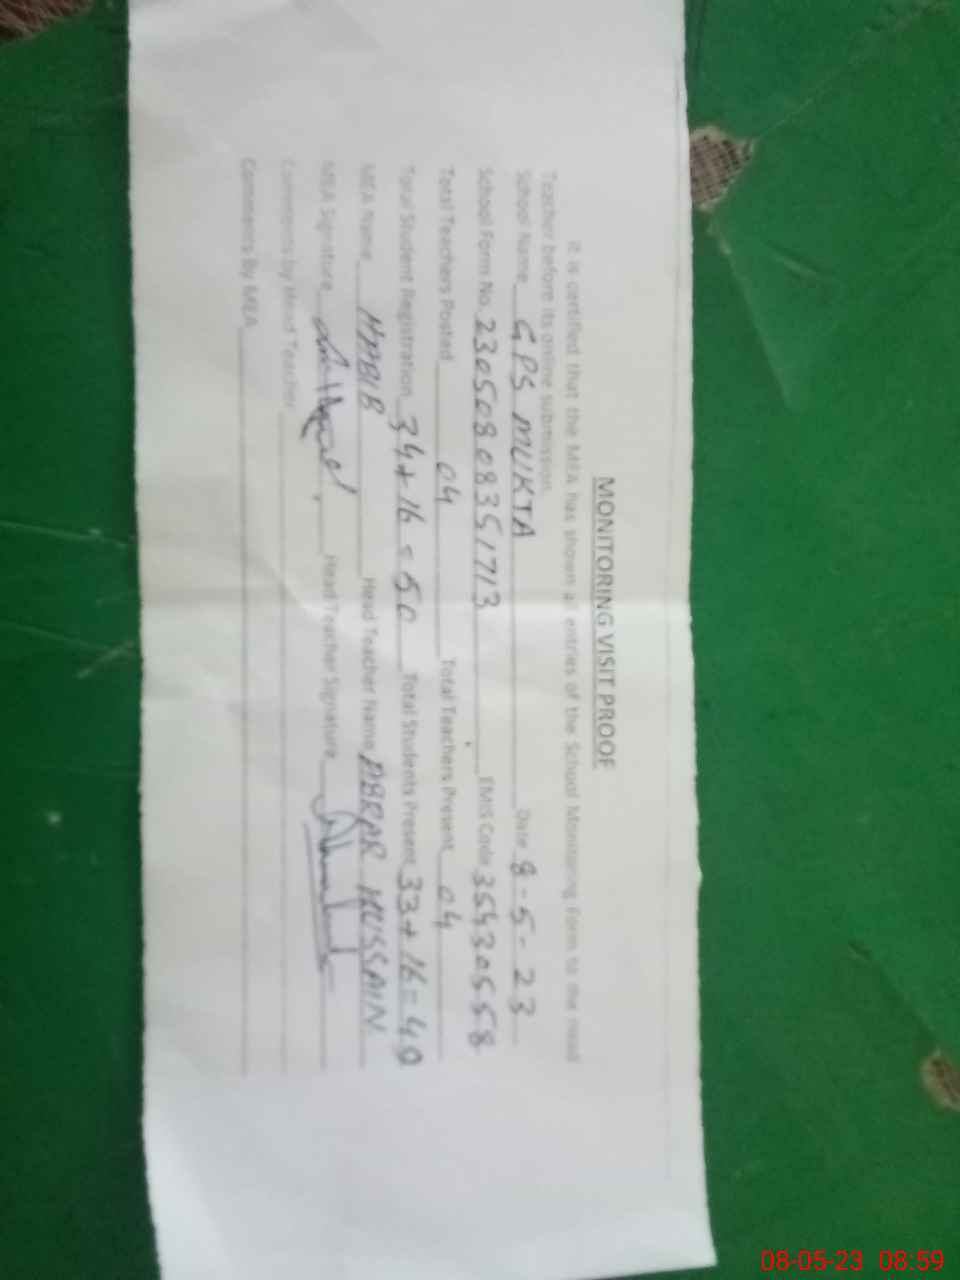 MONITORING VISIT PROOF
It is certified that the MEA has shown all entries of the School Monitoring Form to the Head
Teacher before its online submission.
School Name GPS MUKTA Date 8-5-23
School Form No. 23050808351713 EMIS Code 35430558
Total Teachers Posted 04 Total Teachers Present 04
Total Student Registration 34+16=50 Total Students Present 33+16=49
MEA Name HABIB Head Teacher Name ABRAR HUSSAIN
MEA Signature Head Teacher Signature
Comments by Head Teacher
Comments By MEA
08-05-23 08:59